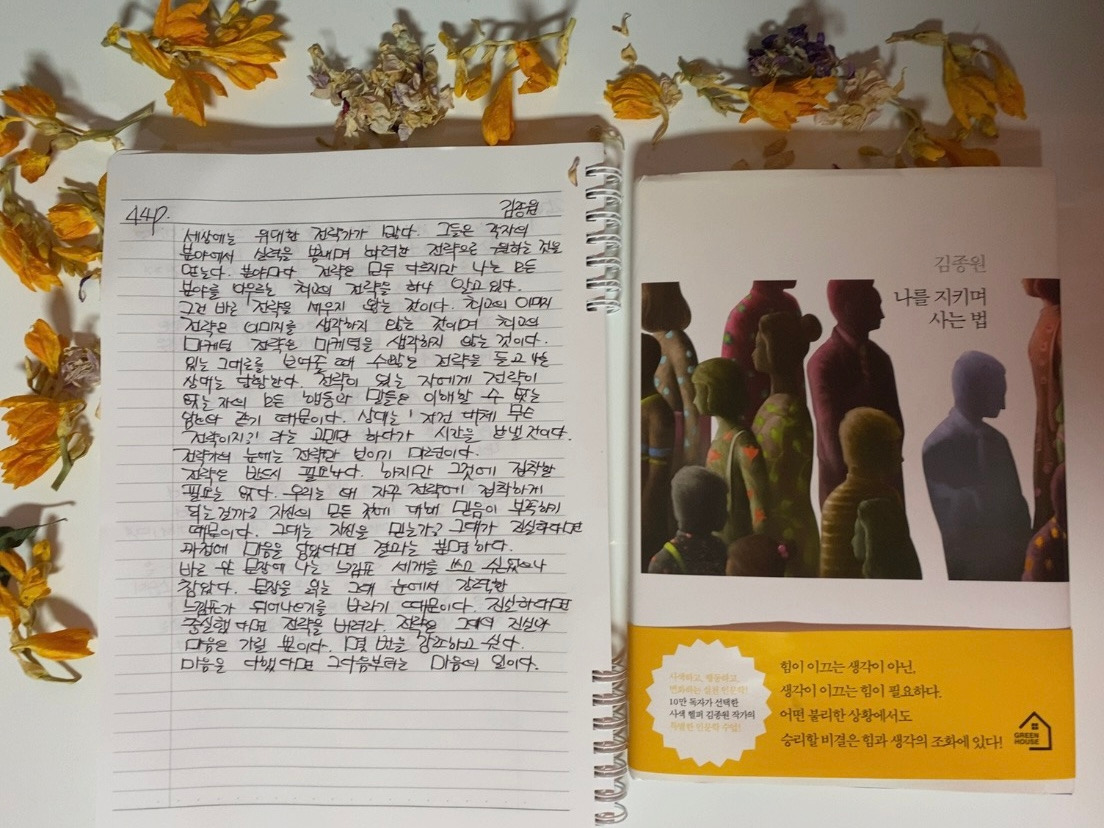 44p.
김종원
세상에는 위대한 전략가가 많다. 그들은 각자의
분야에서 실력을 뽐내며 화려한 전략으로 원하는 것을
얻는다. 분야마다 전략은 모두 다르지만 나는 모든
분야를 아우르는 최고의 전략을 하나 알고 있다.
그건 바로 전략을 세우지 않는 것이다. 최고의 이미지
전략은 이미지를 생각하지 않는 것이며 최고의
마케팅 전략은 마케팅을 생각하지 않는 것이다.
있는 그대로를 보여줄 때 수많은 전략을 들고 나온
상대는 당황한다. 전략이 있는 자에게 전략이
없는 자의 모든 행동과 말들은 이해할 수 없는
암호와 같기 때문이다. 상대는 '저건 대체 무슨
전략이지?' 라는 고민만 하다가 시간을 보낼 것이다.
전략가의 눈에는 전략만 보이기 마련이다.
전략은 반드시 필요하다. 하지만 그것에 집착할
필요는 없다. 우리는 왜 자꾸 전략에 집착하게
되는걸까? 자신의 모든 것에 대해 믿음이 부족하기
때문이다. 그대는 자신을 믿는가? 그대가 진실하다면
과정에 마음을 담았다면 결과는 분명하다.
바로 윗 문장에 나는 느낌표 세개를 쓰고 싶었으나
참았다. 문장을 읽는 그대 눈에서 강력한
느낌표가 튀어나오기를 바라기 때문이다. 진실하다면
충실했다면 전략을 버려라. 전략은 그대의 진실과
마음을 가릴 뿐이다. 몇 번을 강조하고 싶다.
마음을 다했다면 그다음부터는 마음의 일이다.
김종원
나를 지키며
사는 법
사색하고, 행동하고,
변화하는 실천 인문학!
10만 독자가 선택한
사색 멘토 김종원 작가의
특별한 인문학 수업!
힘이 이끄는 생각이 아닌,
생각이 이끄는 힘이 필요하다.
어떤 불리한 상황에서도
승리할 비결은 힘과 생각의 조화에 있다!
GREEN
HOUSE